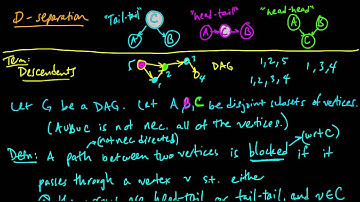 D-separation
"Tail-tail" "head-tail" "head-head"
A C B A C B A B C
Term:
Descendents 5 1 2 3 4 DAG 1,2,5 1,3,4
1,2,3,4
Let G be a DAG. Let A,B,C be disjoint subsets of vertices.
(A∪B∪C is not nec. all of the vertices.)
(not nec. directed) (wrt C)
Defn: A path between two vertices is blocked if it
passes through a vertex v s.t. either
head-tail or tail-tail, and v∈C